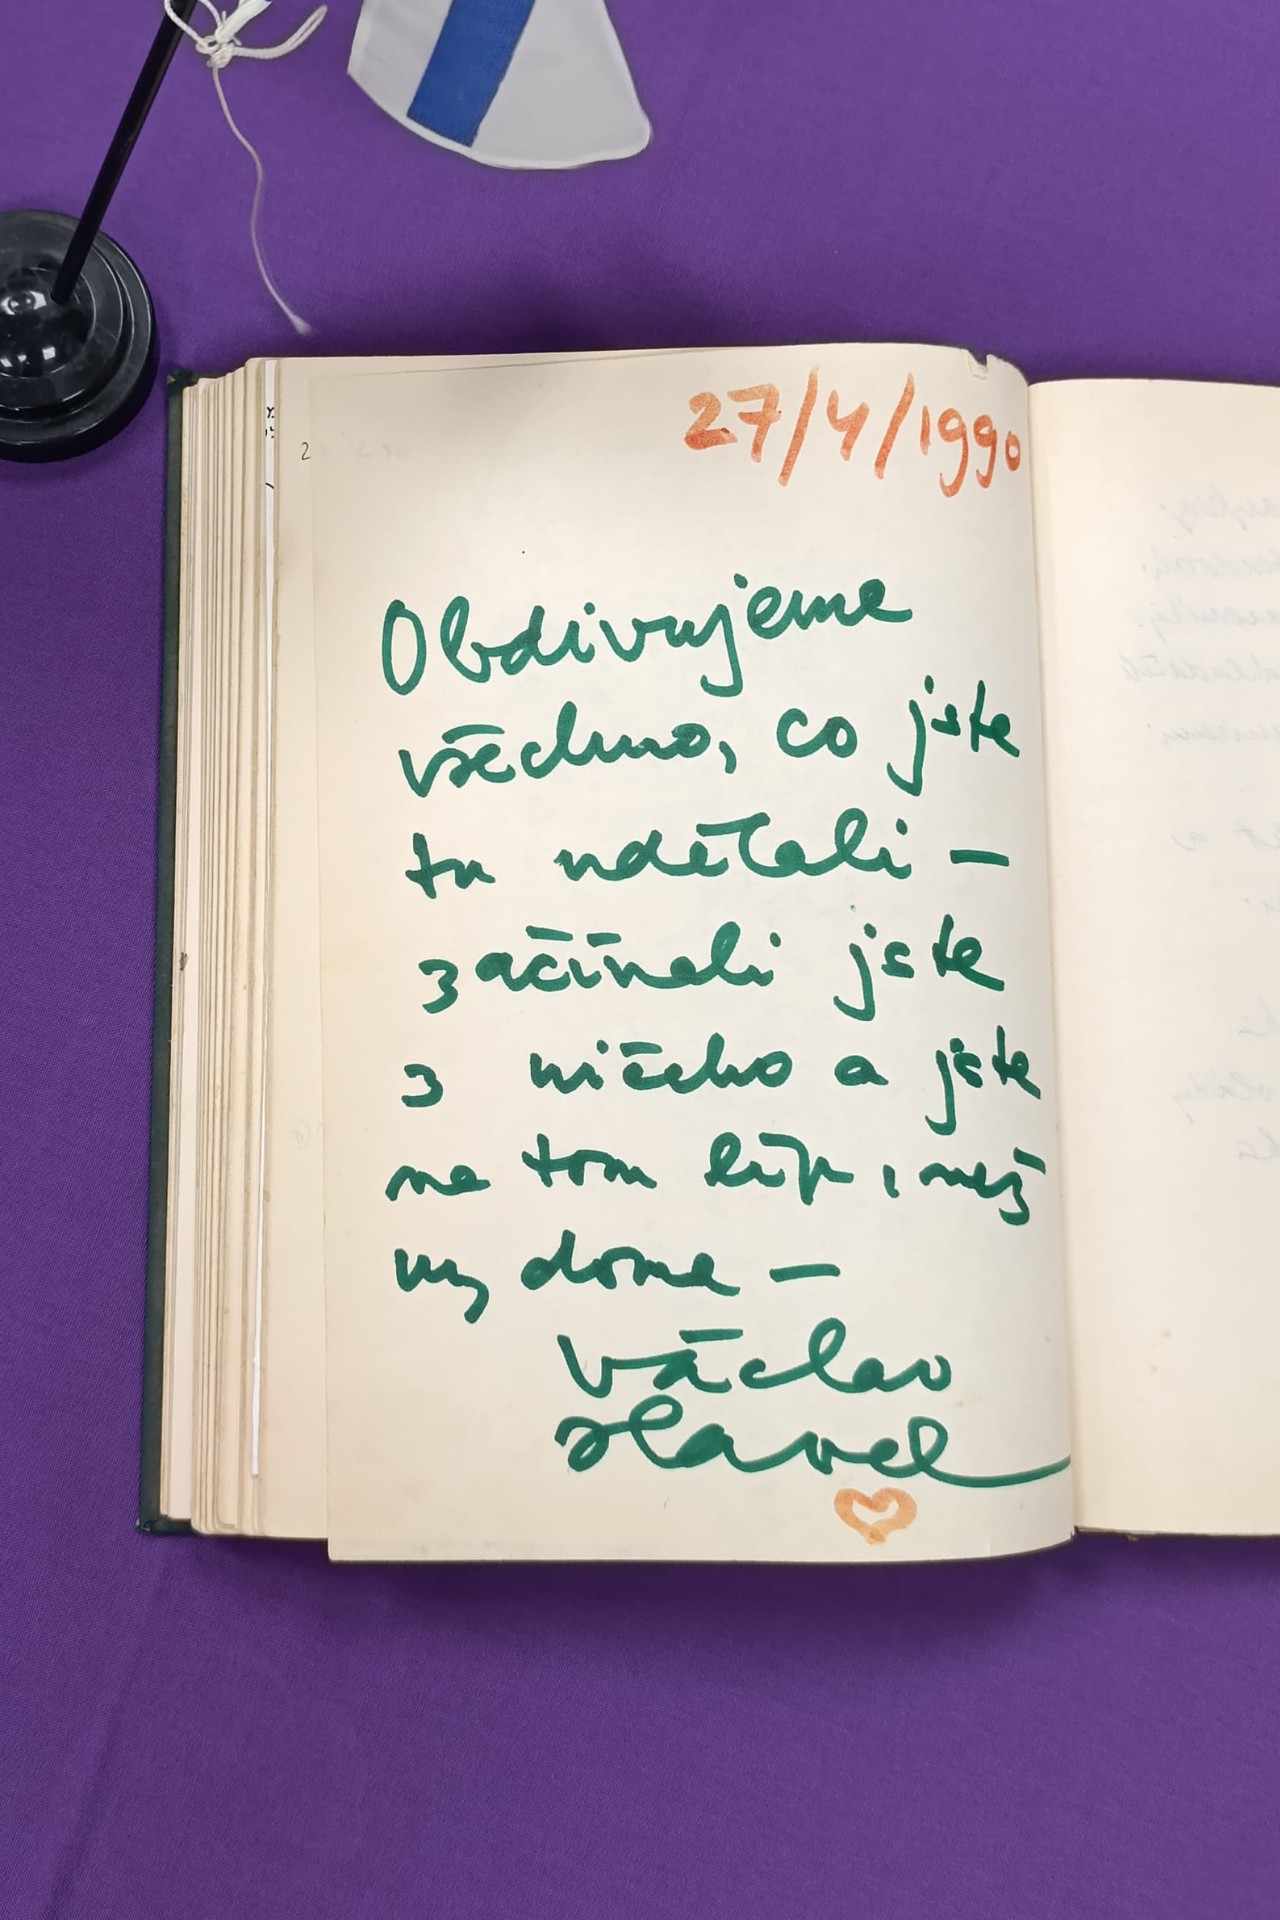 27/4/1990
Obdivujeme
všechno, co jste
tu udělali –
začínali jste
z ničeho a jste
na tom líp, než
my doma –
Václav
Havel